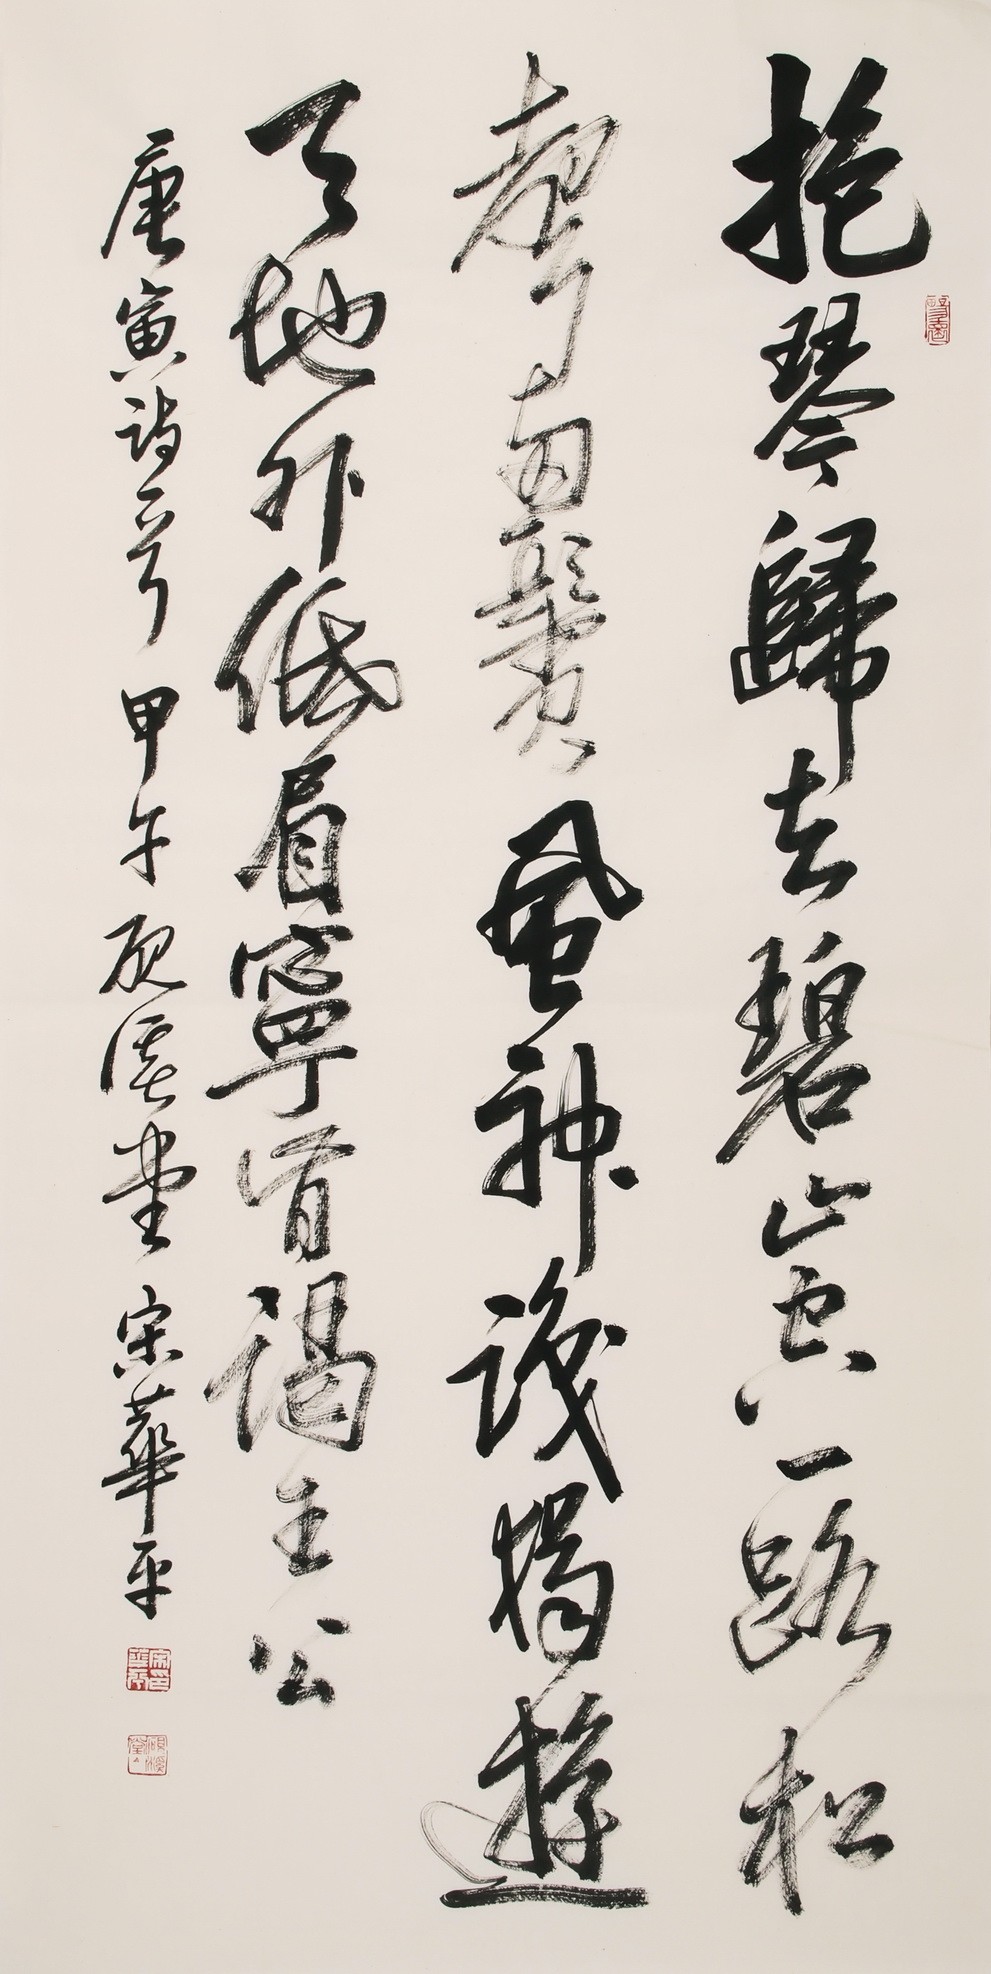 抱琴歸去碧山空一路松
聲兩鬢風神識獨遊
天地外低眉寧肯謁王公
唐寅詩一首 甲午 硯溪堂 宋華平